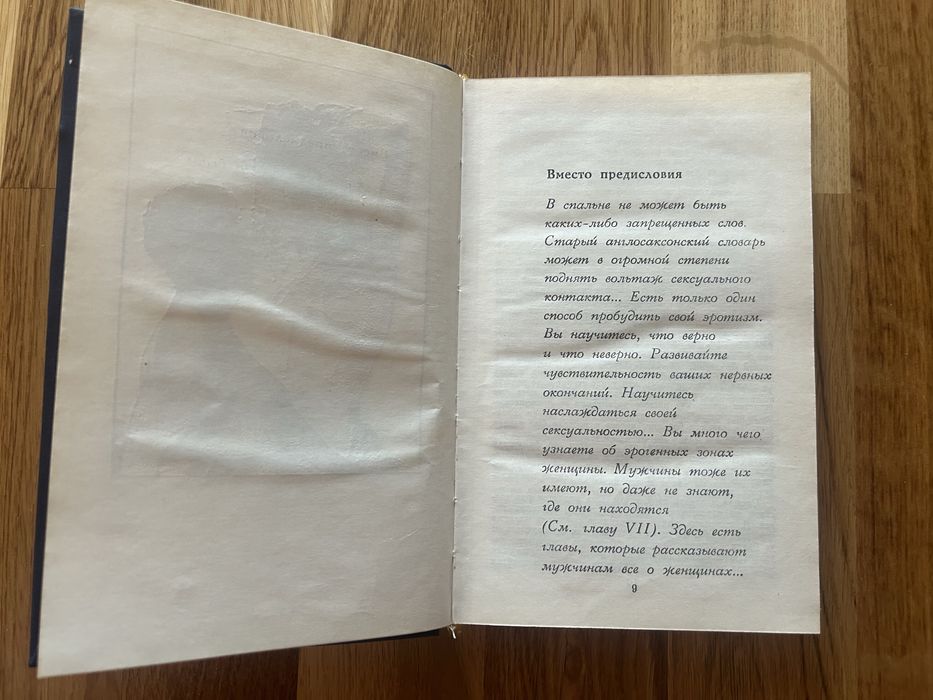 Вместо предисловия
В спальне не может быть
каких-либо запрещенных слов.
Старый англосаксонский словарь
может в огромной степени
поднять вольтаж сексуального
контакта... Есть только один
способ пробудить свой эротизм.
Вы научитесь, что верно
и что неверно. Развивайте
чувствительность ваших нервных
окончаний. Научитесь
наслаждаться своей
сексуальностью... Вы много чего
узнаете об эрогенных зонах
женщины. Мужчины тоже их
имеют, но даже не знают,
где они находятся
(См. главу VII). Здесь есть
главы, которые рассказывают
мужчинам все о женщинах...
9